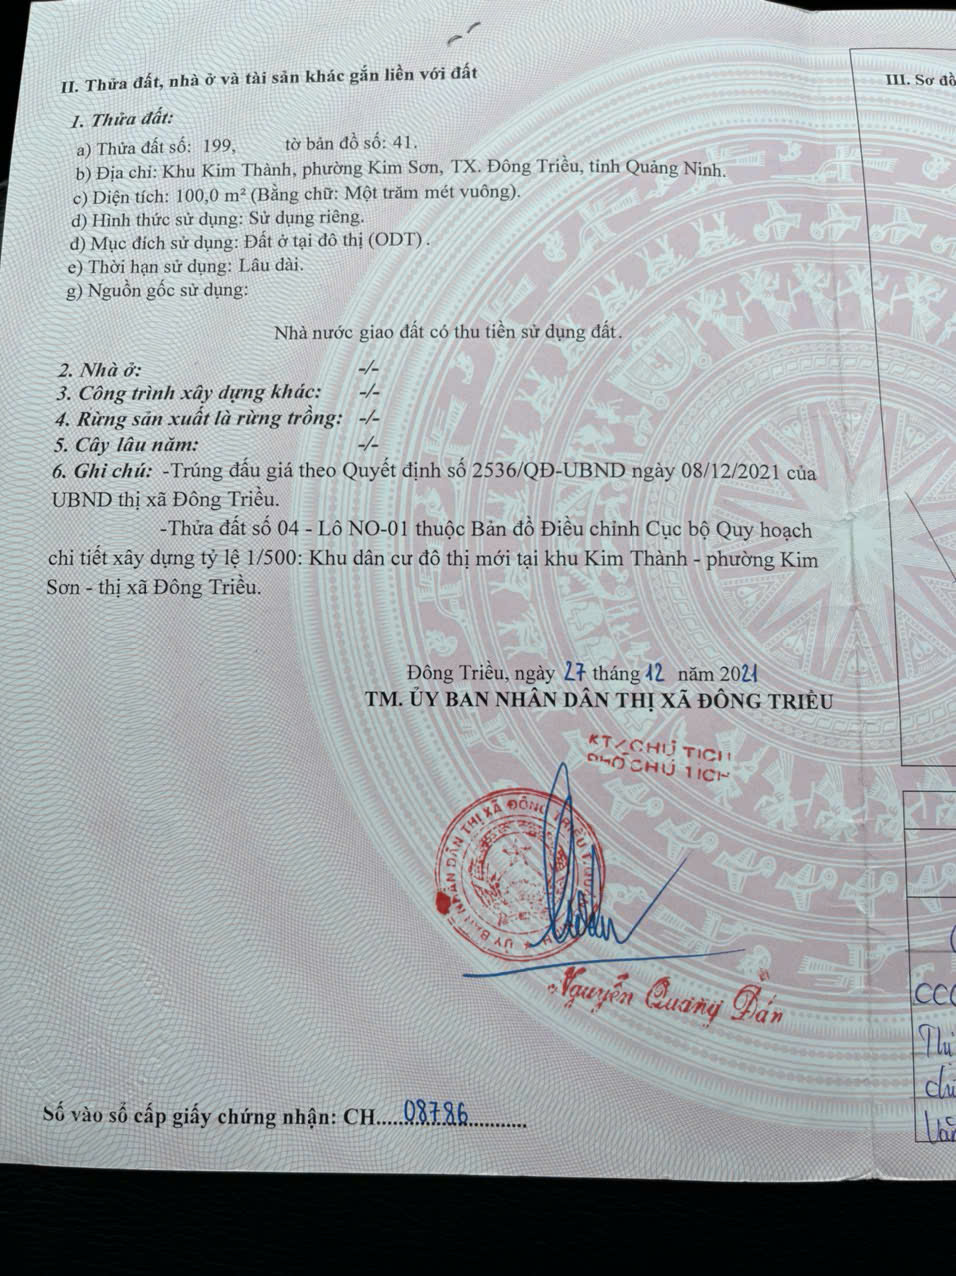 II. Thửa đất, nhà ở và tài sản khác gắn liền với đất
III. Sơ đồ
1. Thửa đất:
a) Thửa đất số: 199, tờ bản đồ số: 41.
b) Địa chỉ: Khu Kim Thành, phường Kim Sơn, TX. Đông Triều, tỉnh Quảng Ninh.
c) Diện tích: 100,0 m² (Bằng chữ: Một trăm mét vuông).
d) Hình thức sử dụng: Sử dụng riêng.
đ) Mục đích sử dụng: Đất ở tại đô thị (ODT).
e) Thời hạn sử dụng: Lâu dài.
g) Nguồn gốc sử dụng:
Nhà nước giao đất có thu tiền sử dụng đất.
2. Nhà ở: -/-
3. Công trình xây dựng khác: -/-
4. Rừng sản xuất là rừng trồng: -/-
5. Cây lâu năm: -/-
6. Ghi chú: -Trúng đấu giá theo Quyết định số 2536/QĐ-UBND ngày 08/12/2021 của
UBND thị xã Đông Triều.
-Thửa đất số 04 - Lô NO-01 thuộc Bản đồ Điều chỉnh Cục bộ Quy hoạch
chi tiết xây dựng tỷ lệ 1/500: Khu dân cư đô thị mới tại khu Kim Thành - phường Kim
Sơn - thị xã Đông Triều.
Đông Triều, ngày 27 tháng 12 năm 2021
TM. ỦY BAN NHÂN DÂN THỊ XÃ ĐÔNG TRIỀU
KT/CHỦ TỊCH
PHÓ CHỦ TỊCH
ỦY BAN NHÂN DÂN THỊ XÃ ĐÔNG TRIỀU
Nguyễn Quang Dán
CCC
Số vào sổ cấp giấy chứng nhận: CH.....08786............